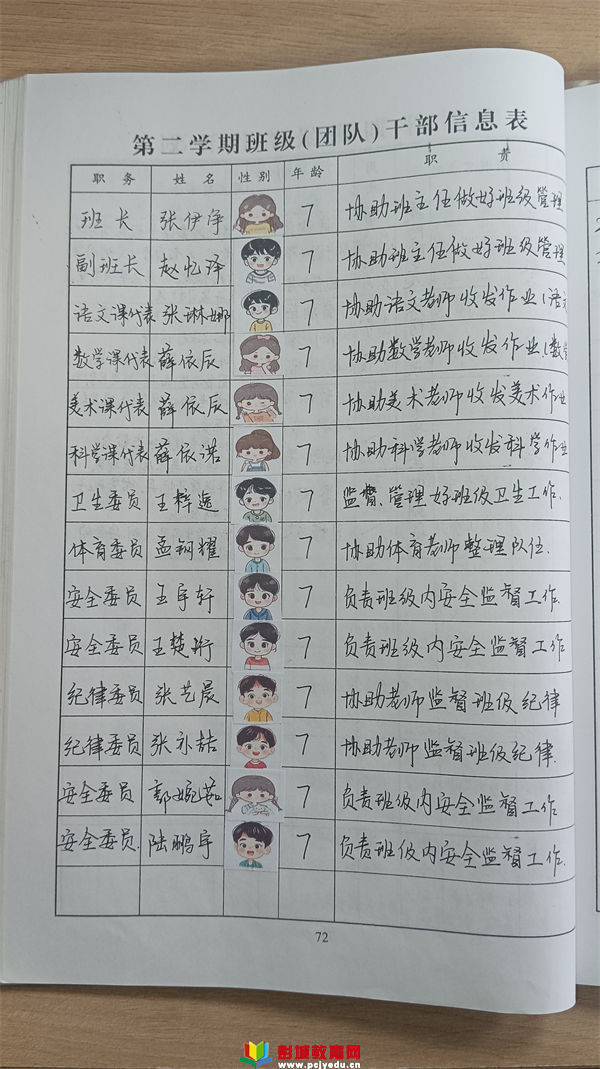 第二学期班级(团队)干部信息表
职务 姓名 性别 年龄 职责
班长 张伊净 7 协助班主任做好班级管理
副班长 赵忆泽 7 协助班主任做好班级管理
语文课代表 张琳娜 7 协助语文老师收发作业(语文
数学课代表 薛依辰 7 协助数学老师收发作业(数学
美术课代表 薛依辰 7 协助美术老师收发美术作业
科学课代表 薛依诺 7 协助科学老师收发科学作业
卫生委员 王梓 7 监督、管理好班级卫生工作.
体育委员 孟钢耀 7 协助体育老师整理队伍.
安全委员 王宇轩 7 负责班级内安全监督工作.
安全委员 王楚珩 7 负责班级内安全监督工作
纪律委员 张艺晨 7 协助老师监督班级纪律
纪律委员 张木喆 7 协助老师监督班级纪律.
安全委员 郭婉茹 7 负责班级内安全监督工作
安全委员. 陆鹏宇 7 负责班级内安全监督工作.
72
彭城教育网
www.pcjyedu.cn